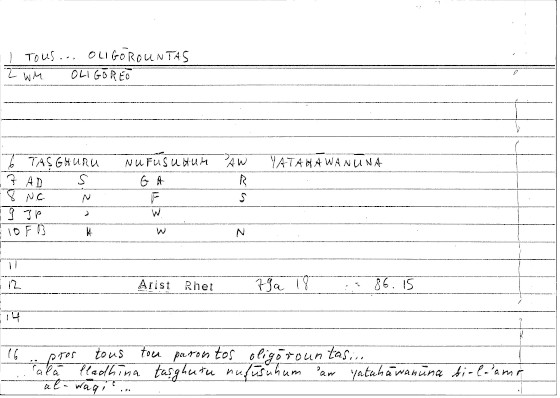 1 TOUS... OLIGŌROUNTAS
2 WM OLIGŌREŌ
6 TAṢGHURU NUFŪSUHUM 'AW YATAHĀWANŪNA
7 AD S G A R
8 NC N F S
9 JP ' W
10 FB H W N
11
12 Arist Rhet 79a 18 86.15
14
16 .. pros tous tou parontos oligōrountas...
'alā lladhīna taṣghuru nufūsuhum 'aw yatahāwanūna bi-l-'amr
al-wāqi'...